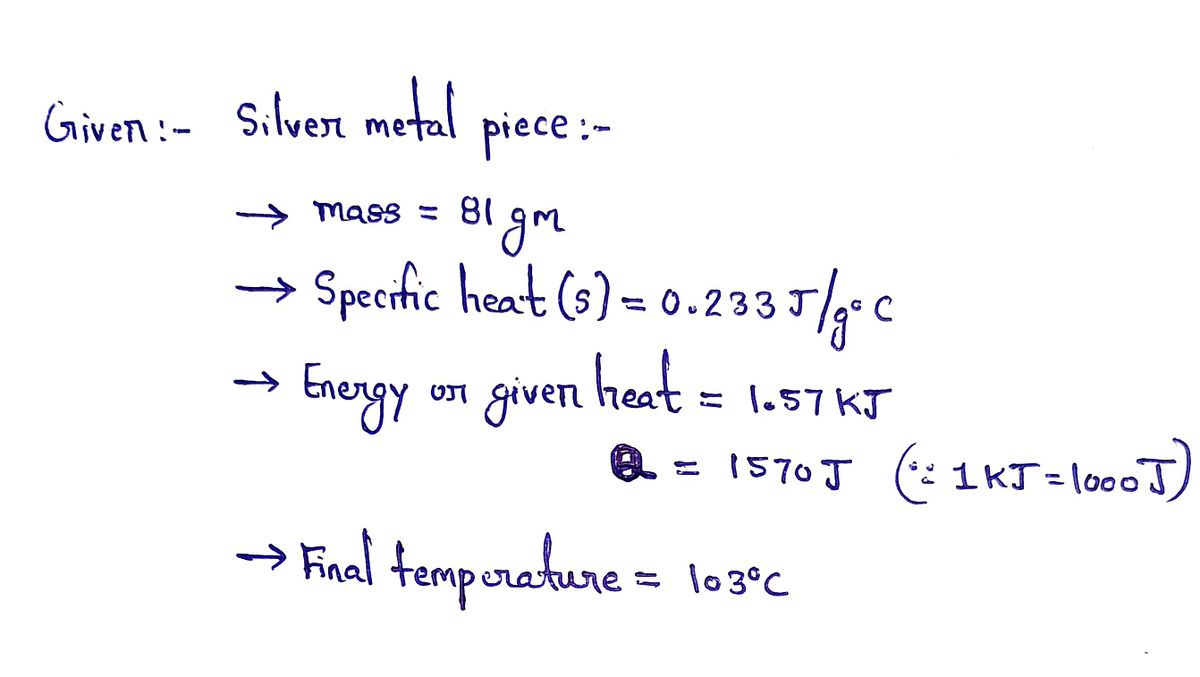 Given:- Silver metal piece:-
→ mass = 81 gm
→ Specific heat (s) = 0.233 J/g°C
→ Energy or given heat = 1.57 KJ
Q = 1570 J (∵ 1 KJ = 1000 J)
→ Final temperature = 103°C